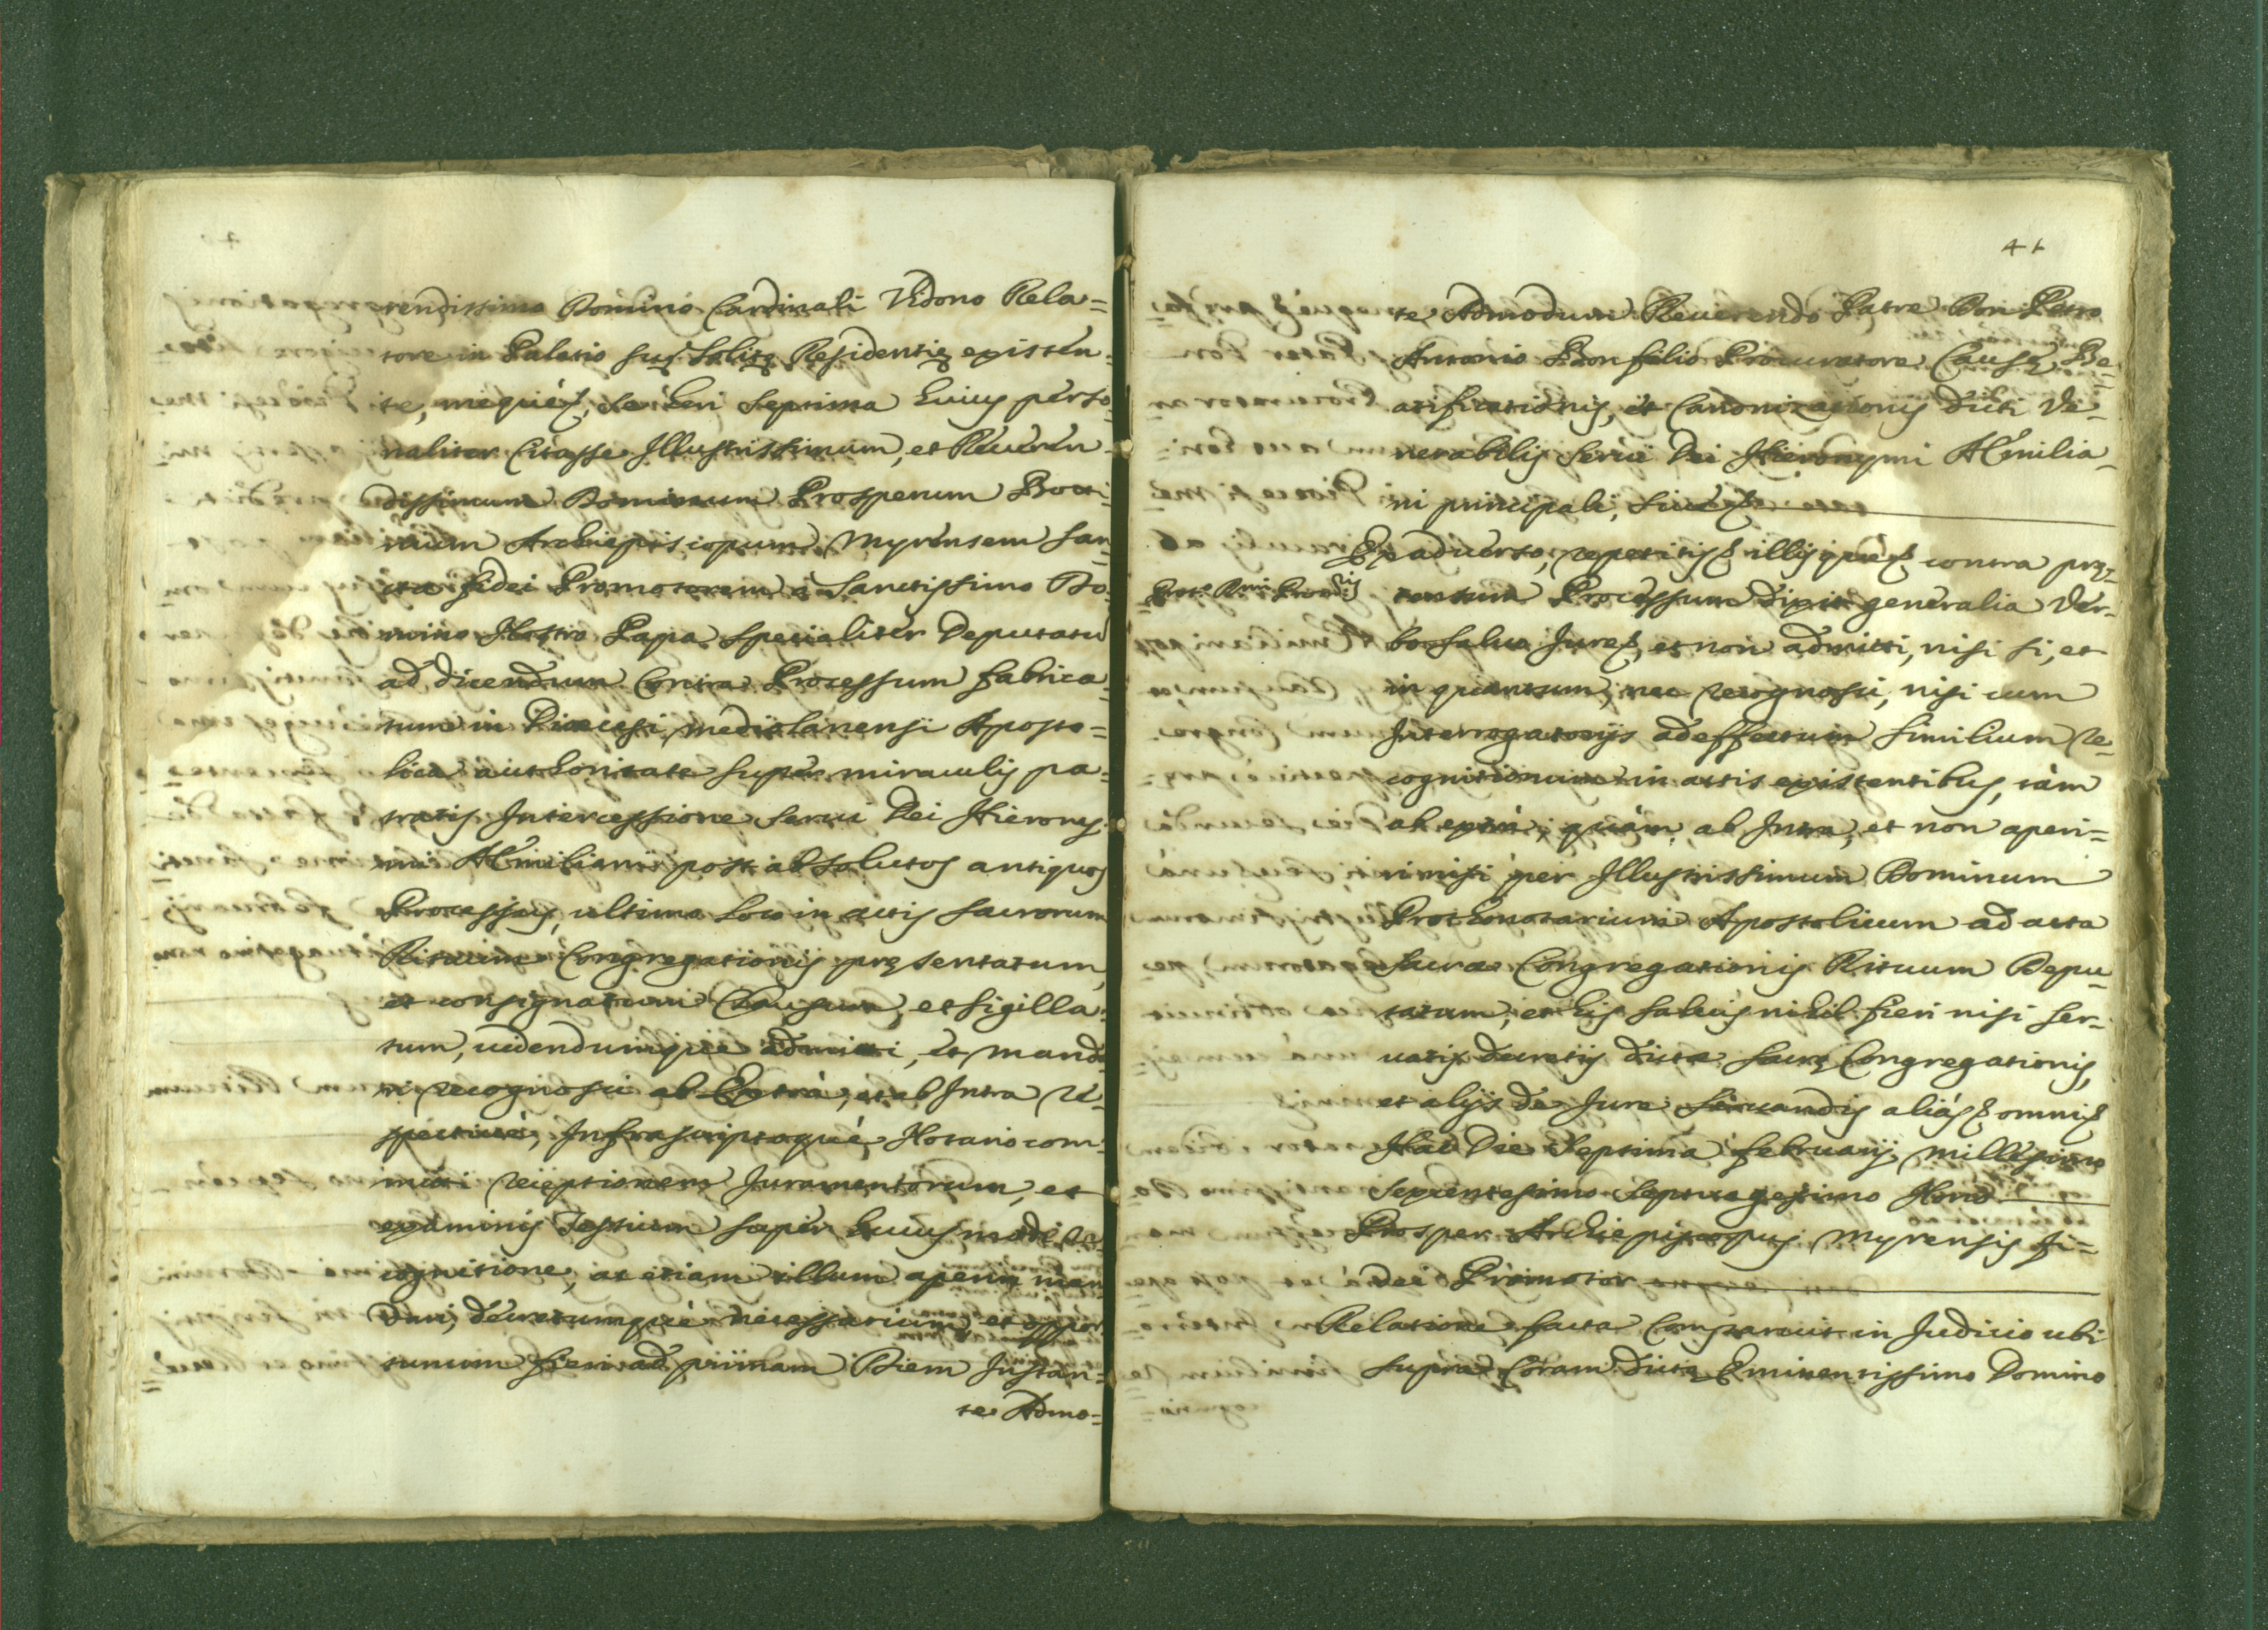 rendissimo Domino Cardinali Vidono Rela=
tore in Palatio suę Solitę Residentię existen=
te, mequè &, se heri Septima huius perso=
naliter Citasse Illustrissimum, et Reueren=
dissimum Dominum Prosperum Botti=
nium Archiepiscopum Myrensem San=
cta fidei Promotorem à Sanctissimo Do=
mino Nostro Papa Specialiter Deputatu
ad dicendum Contra Processum fabrica=
tum in Dioecesi Mediolanensi Aposto=
lica authoritate super miraculis pa=
tratis Intercessione Serui Dei Hierony=
mi AEmiliani post absolutos antiquos
Processus, ultimo loco in actis Sacrorum
Rituum Congregationis pręsentatum,
et consignatum Clausum, et sigilla=
tum, uidendumque admitti, et manda
ri recognosci ab Extrà, et ab Intra re=
spectiuè, Infrascriptoquè Notario com=
mitti receptionem Juramentorum, et
examinis Testium super huiusmodi re=
cognitione, ac etiam illum aperiri man
dari, decretumquè necessarium, et oppor
tunum fieri ad primam Diem Instan=
te Admo=
41
te Admodum Reuerendo Patre Don Petro
Antonio Bonfilio Procuratore Causę Be=
atificationis, et Canonizationis dicti Ve=
nerabilis Serui Dei Hieronymi AEmilia=
ni principali, siue &
Ex aduerso, repetitis & illisque & contra pręs=
tensum Processum dixit generalia Ver=
bo saluo Jure &, et non admitti, nisi si, et
in quantum, nec recognosci, nisi cum
Interrogatorijs ad effectum similium re=
cognitionum in actis existentibus, tàm
ab extrà, quàm ab Intra, et non aperi=
ri nisi per Illustrissimum Dominum
Prothonotarium Apostolicum ad acta
Sacrae Congregationis Rituum Depu=
tatum, et his saluis nihil fieri nisi ser=
uatis decretis dictae Sacrę Congregationis,
et alijs de Jure Seruandis aliàs & omni &
Hac Die Septima februarij Millesimo
Sexcentesimo Septuagesimo Nono
Prosper Archiepiscopus Myrensis fi=
dei Promotor
Relatione facta Comparuit in Judicio ubi
supra Coram dicto Eminentissimo Domino